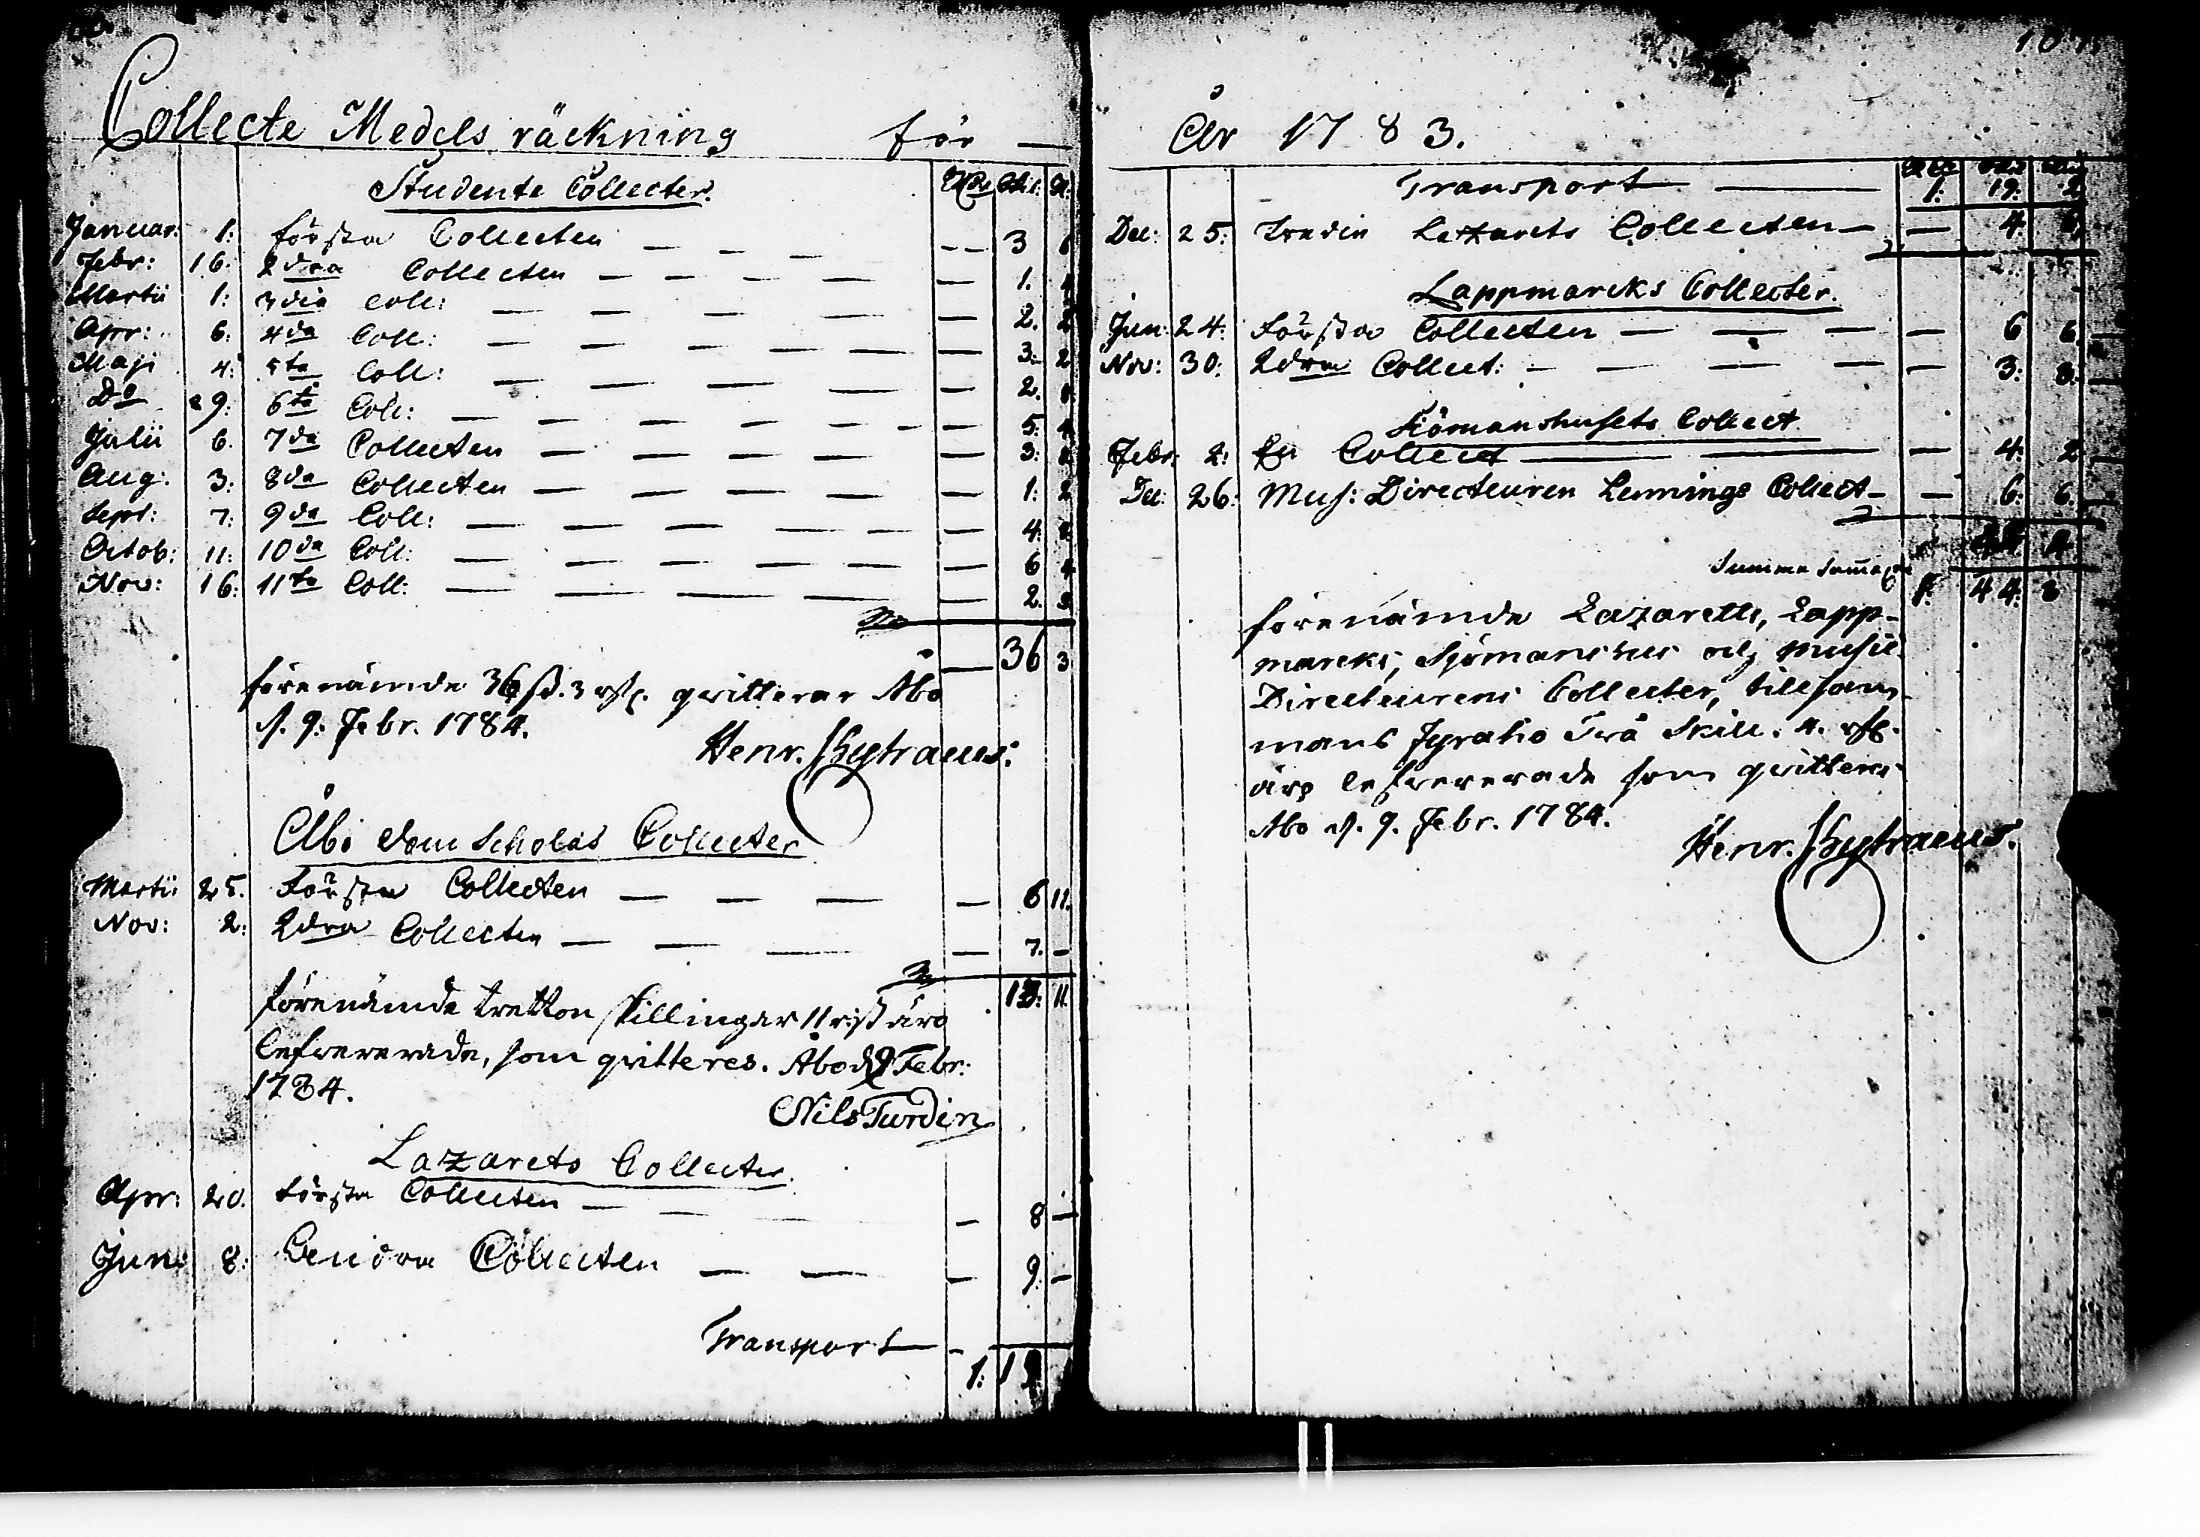 Collecte Medels räckning för —
Studente Collecter. Rdr Skil: R:
Januar: 1: första Collecten — 3
Febr: 16: 2dra Collecten — 1.
Martii 1: 3dia Coll: — 2.
Apr: 6: 4da Coll: — 3: 2
Maji 4: 5ta Coll: — 2.
Do 29: 6ta Coll: — 5:
Julii 6. 7da Collecten — 3:
Aug: 3: 8da Collecten — 1: 2
Sept: 7: 9da Coll: — 4.
Octob: 11: 10da Coll: — 6 4
Nov: 16: 11ta Coll: — 2.
— 36 3
förenämde 36 sß. 3 rst. qvitterar Åbo
d. 9. Febr. 1784.
Henr.
Åbo Dom Scholas Collecter
Martii 25. Första Collecten — 6 11.
Nov: 2: 2dra Collecten — 7. —
13: 11.
förenämde tretton skillingar 11 r:st äro
lefwererade, som qvitteres. Åbo d 9 Febr:
1784.
Nils Turdin
Lazarets Collecter.
Apr: 20. första Collecten — 8 —
Jun: 8: Andra Collecten — 9. —
Transport — 1: 19
År 1783.
Transport — 1: 19: 2
Dec: 25: Tredie Lazarets Collecten — 4. 6.
Lappmarcks Collecter.
Jun: 24: Första Collecten — 6 6.
Nov: 30: 2dra Collect: — 3: 8.
Siömanshusets Collect
Febr: 2: En Collect — 4: 2
Dec: 26: Mus: Directeuren Lennings Collect — 6: 6.
Summa Summarum 1: 44: 8
förenämde Lazaretts, Lapp-
marcks, Sjömanshus och Music
Directeurens Collecter, tillsam-
mans Fyratio Två Skill. 4. rst.
äro lefwererade som qvitteras
Åbo d. 9. Febr. 1784.
Henr.